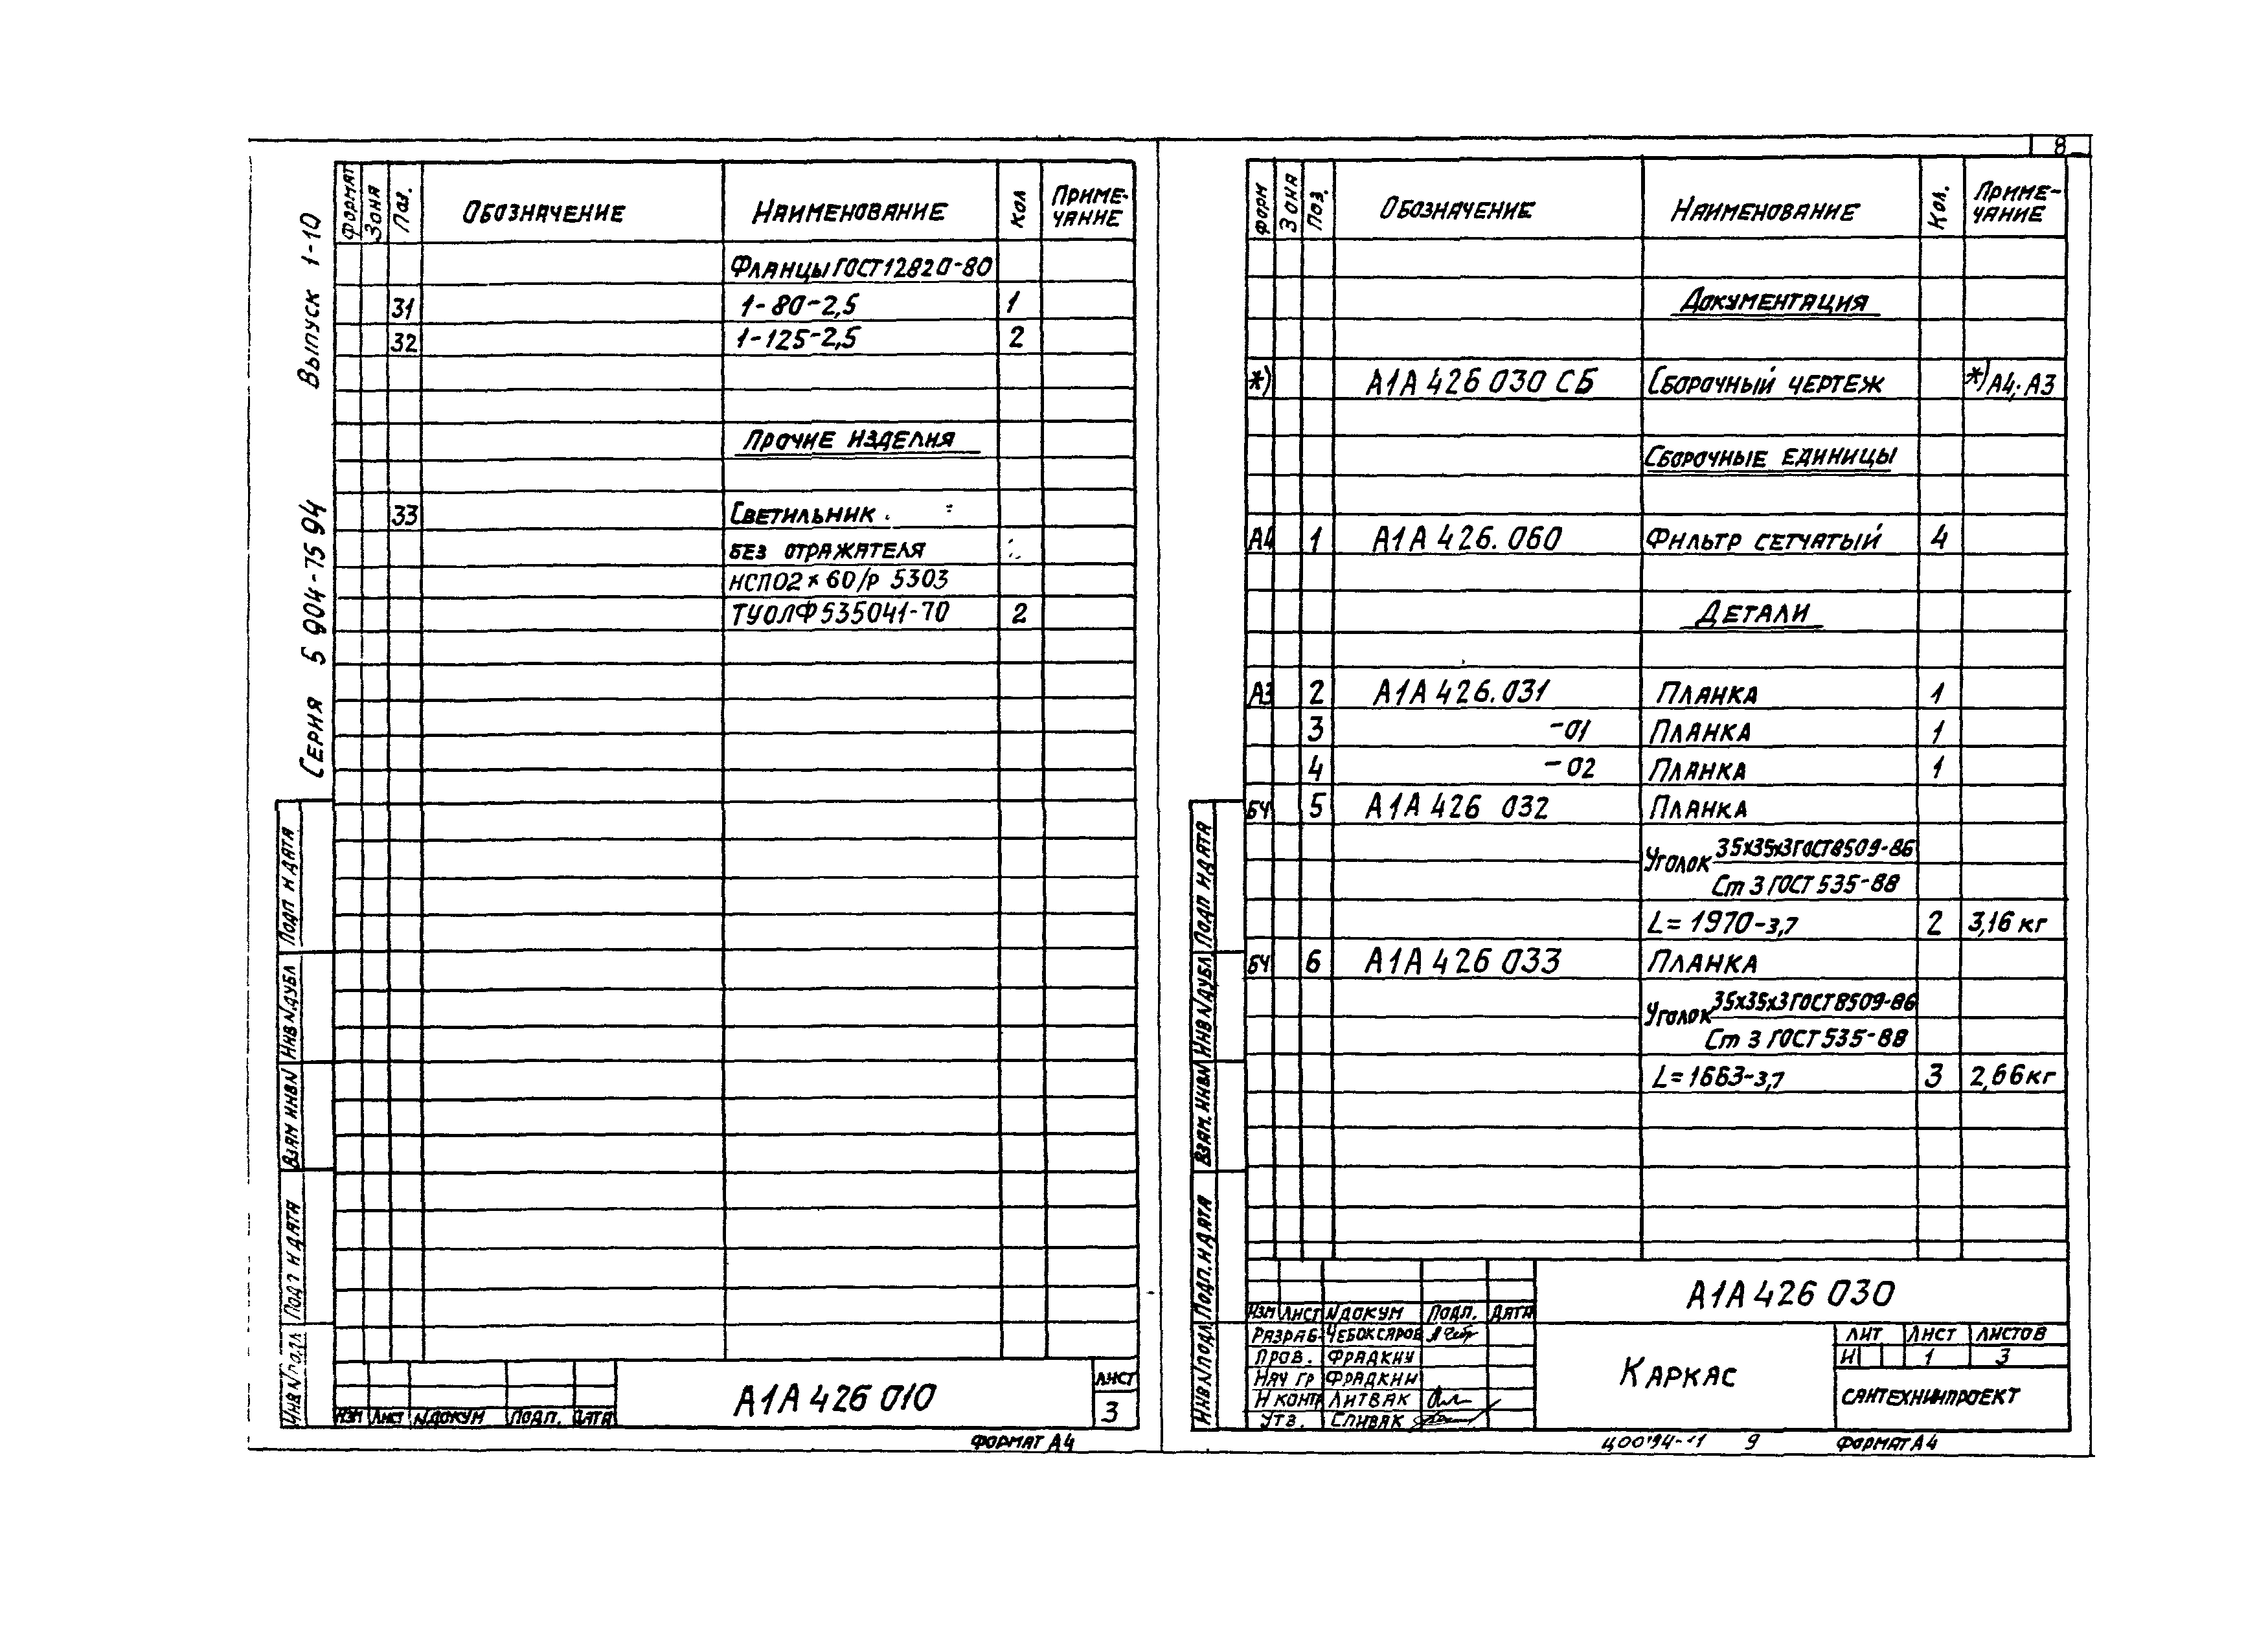 8
Выпуск 1-10
Серия 5 904-75 94
Формат Зона Поз. Обозначение Наименование Кол Приме-
чание
Фланцы ГОСТ 12820-80
31 1-80-2,5 1
32 1-125-2,5 2
Прочие изделия
33 Светильник
без отражателя
НСП02×60/р 5303
ТУОЛФ535041-70 2
Подп и дата
Инв № дубл
Взам инв №
Подп и дата
Инв № подл
Изм Лист № докум Подп. Дата
А1А 426 010
Лист
3
Формат А4
Форм Зона Поз. Обозначение Наименование Кол. Приме-
чание
Документация
*) А1А 426 030 СБ Сборочный чертеж *) А4; А3
Сборочные единицы
А4 1 А1А 426. 060 Фильтр сетчатый 4
Детали
А3 2 А1А 426. 031 Планка 1
3 -01 Планка 1
4 -02 Планка 1
БЧ 5 А1А 426 032 Планка
Уголок 35х35х3 ГОСТ 8509-86
Ст 3 ГОСТ 535-88
L= 1970-3,7 2 3,16 кг
БЧ 6 А1А 426 033 Планка
Уголок 35х35х3 ГОСТ 8509-86
Ст 3 ГОСТ 535-88
L= 1663-3,7 3 2,66 кг
Подп и дата
Инв № дубл
Взам. инв №
Подп. и дата
Инв № подл
Изм Лист № докум Подп. Дата
Разраб Чебоксаров
Пров. Фрадкин
Нач гр Фрадкин
Н контр Литвак
Утв. Спивак
А1А 426 030
Каркас
Лит Лист Листов
И 1 3
Сантехниипроект
9 Формат А4